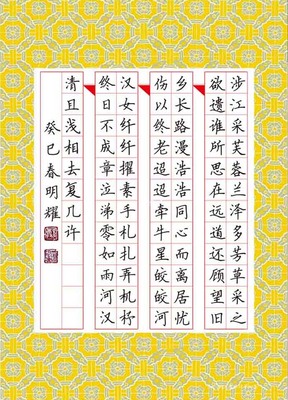 涉江采芙蓉兰泽多芳草采之
欲遗谁所思在远道还顾望旧
乡长路漫浩浩同心而离居忧
伤以终老迢迢牵牛星皎皎河
汉女纤纤擢素手札札弄机杼
终日不成章泣涕零如雨河汉
清且浅相去复几许
癸巳春明耀